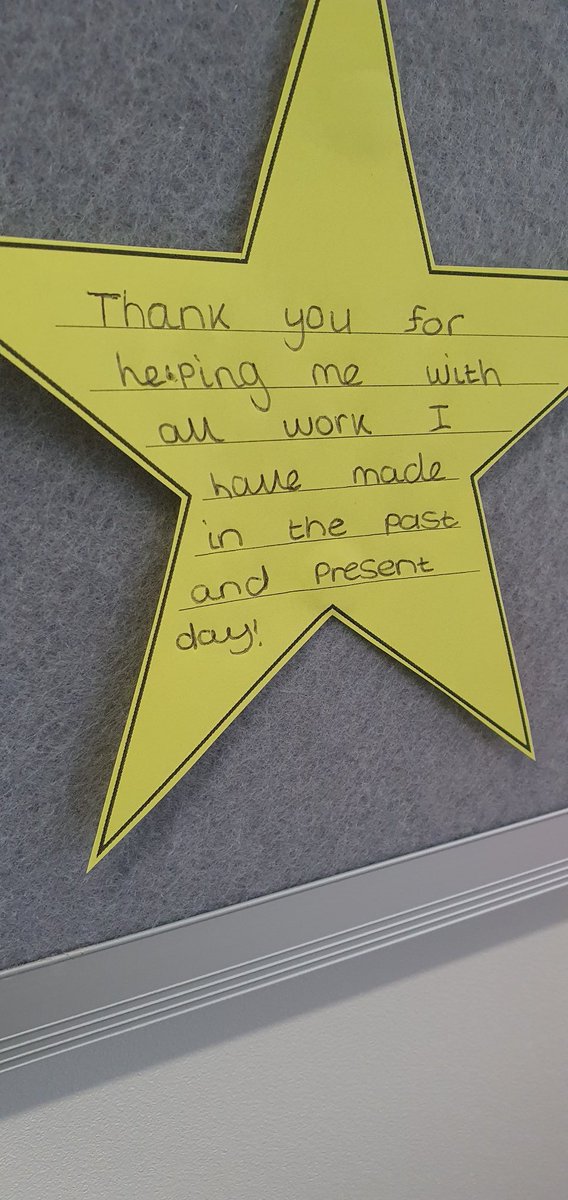 Thank you for
helping me with
all work I
have made
in the past
and present
day!